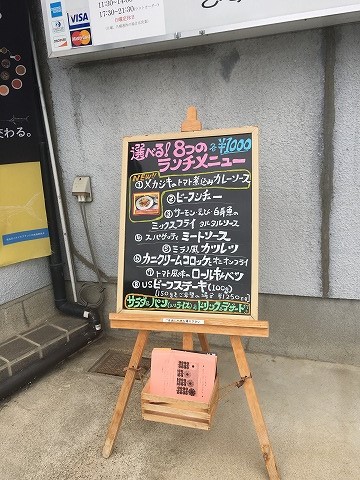 11:30~14:00
17:30~21:30
VISA
MasterCard
わる。
選べる!8つの 各¥1000
ランチメニュー
NEW!!
①メカジキのトマト煮込みカレーソース
②ビーフシチュー
③サーモン・えび・白身魚の
ミックスフライ タルタルソース
④スパゲッティミートソース
⑤ミラノ風カツレツ
⑥カニクリームコロッケとオニオンフライ
⑦トマト風味のロールキャベツ
⑧USビーフステーキ(100g)
(150gをご希望の場合 ¥1250です)
サラダ、パン(orライス)、ドリンク、デザート付